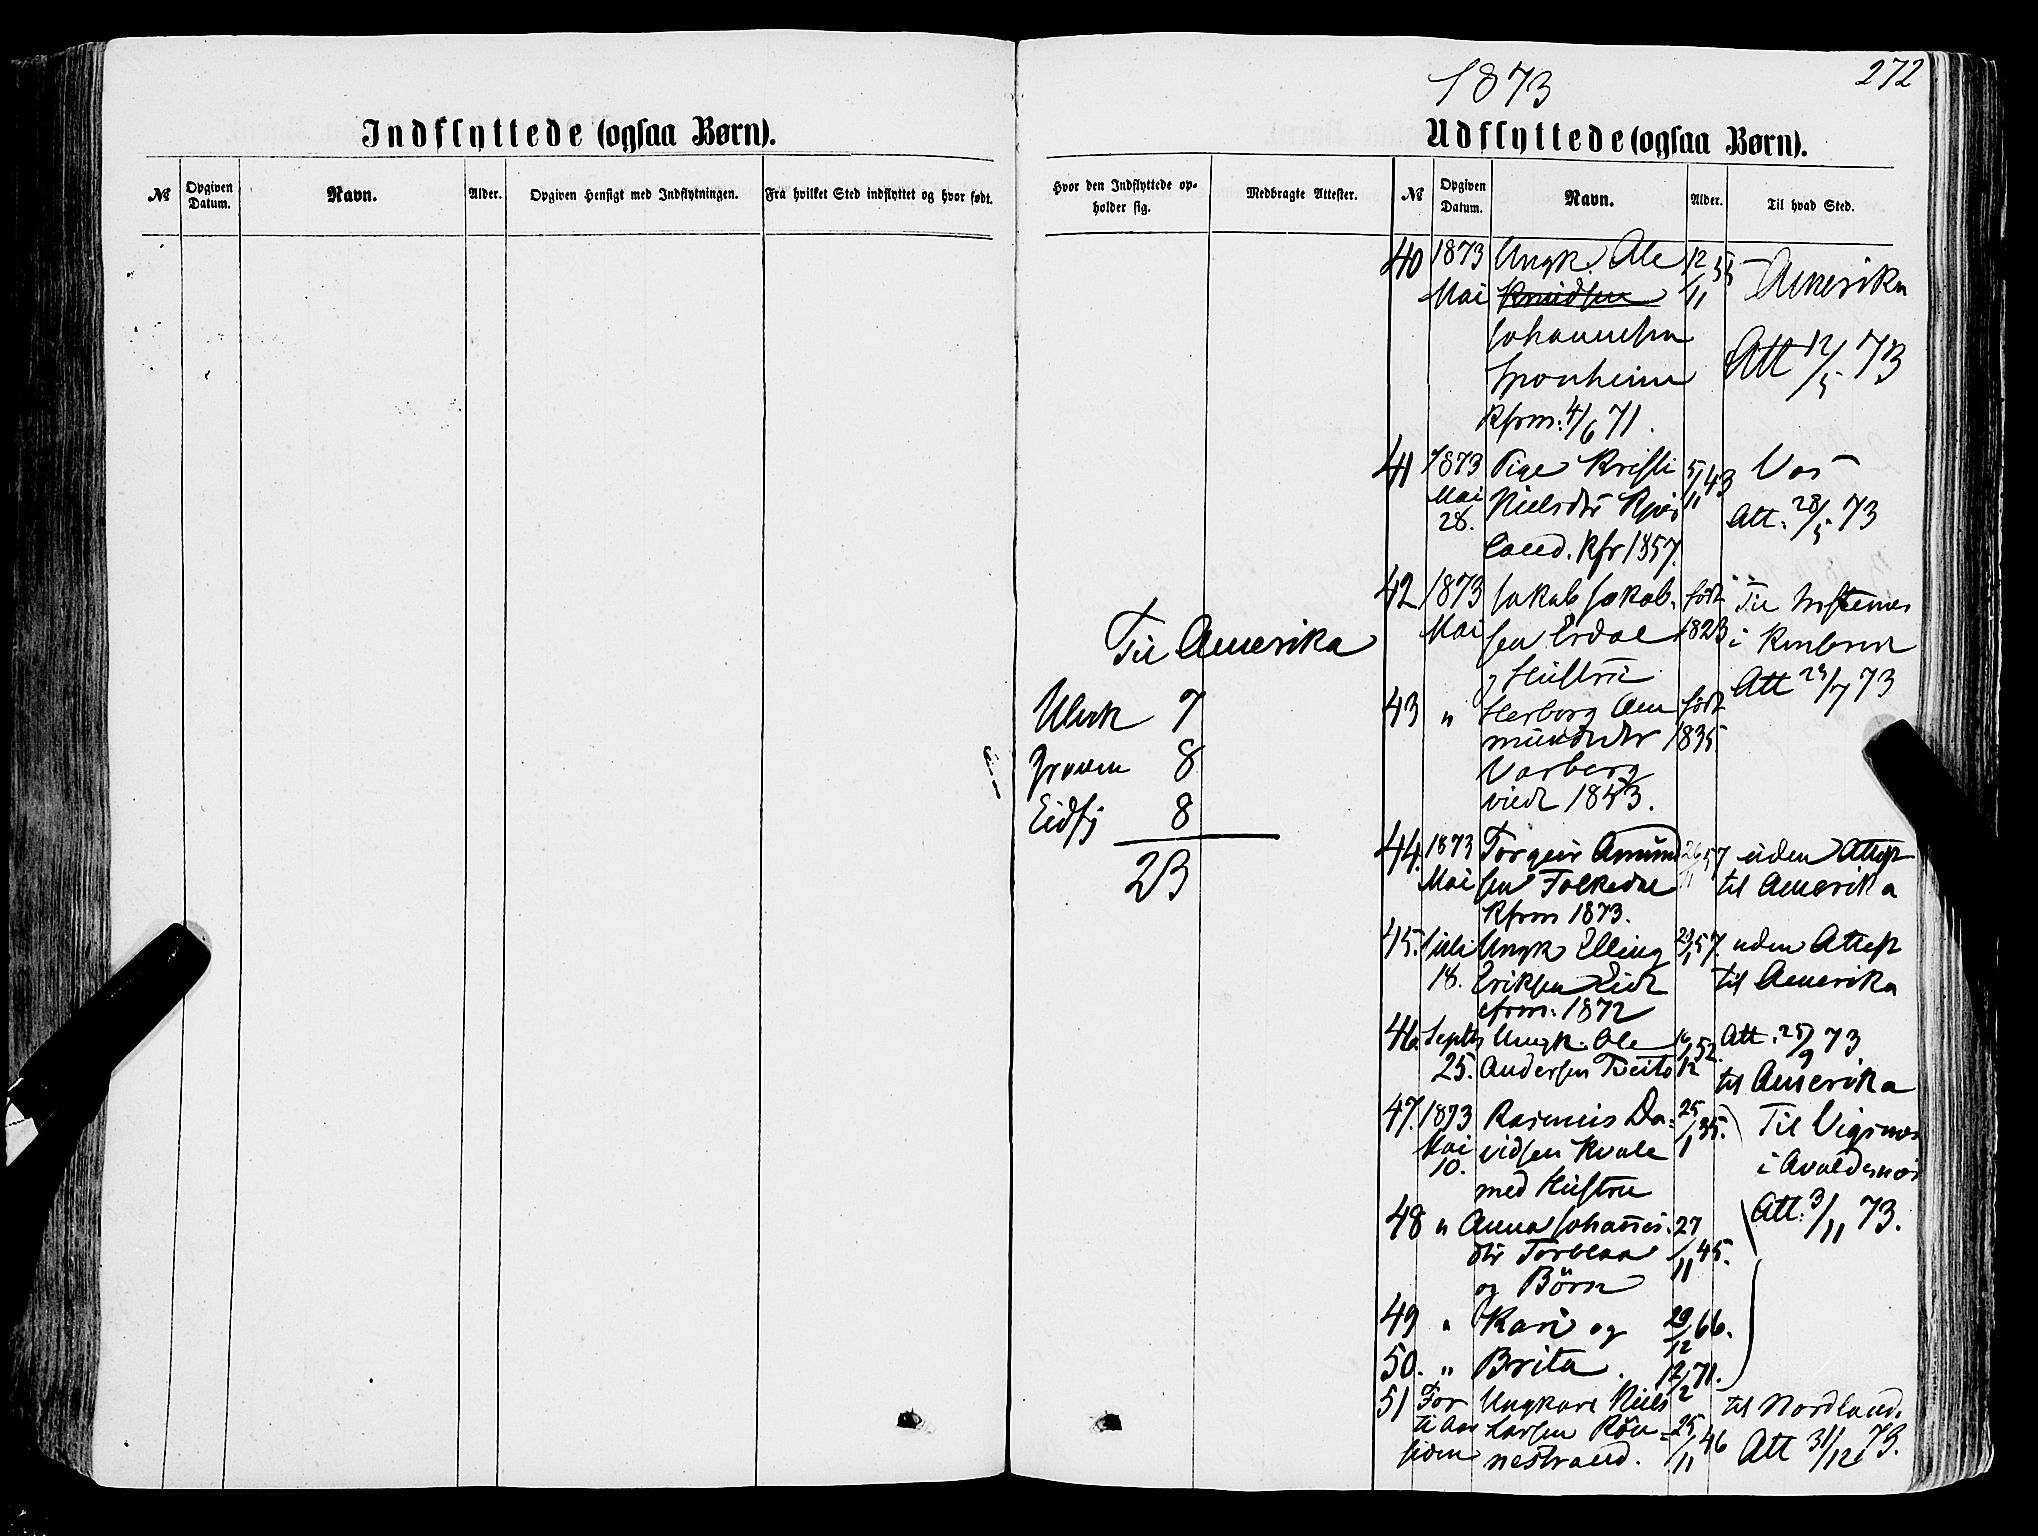 Indflyttede (ogsaa Børn).
№
Opgiven Datum.
Navn.
Alder.
Opgiven Hensigt med Indflytningen.
Fra hvilket Sted indflyttet og hvor født.
1873
272
Udflyttede (ogsaa Børn).
Hvor den Indflyttede op-
holder sig.
Medbragte Attester.
№
Opgiven Datum.
Navn.
Alder.
Til hvad Sted.
40 1873 Ungk. Ole 12/11 55 Amerika
Mai Knudsen
Johannesen
Sponheim Att 12/5 73
Kfrm. 4/6 71.
41 1873 Pige Kristi 5/11 43 Vos
Mai Nielsdtr
28. land. Kfr 1857. Att. 28/5 73
42 1873 Jakob Jakob- født Til
Mai sen Erdal 1823 i
og Hustru Att 29/7 73
43 " Herborg Am født
mundsdtr 1835.
Varberg
viede 1853.
Til Amerika
Ulvik 7
Graven 8
Eidfj 8
23
44. 1873 Torgeir Amund 26/11 57 uden Attest
Mai sen Folkedal til Amerika
Kfrm 1873.
45. Juli Ungk Elling 29/1 57. uden Attest
18. Eriksen Eide til Amerika
cfrm. 1872
46. Septbr Ungk. Ole 16/12 52. Att. 25/9 73
25. Andersen Tveito til Amerika
47. 1873 Rasmus Da- 25/1 35. Til Vigsnes
Mai vidsen Kvale i Avaldsnes
10. med Hustru
48 " Anna Johannes- 27/11 45. Att. 3/11 73.
dtr Torblaa
og Börn
49 " Kari og 29/12 66.
50. " Brita. 12/2 71.
51 For Ungkarl Niels til Nordland.
ti Aar Larsen Rön- 25/11 46 Att 31/12 73.
siden nestrand.